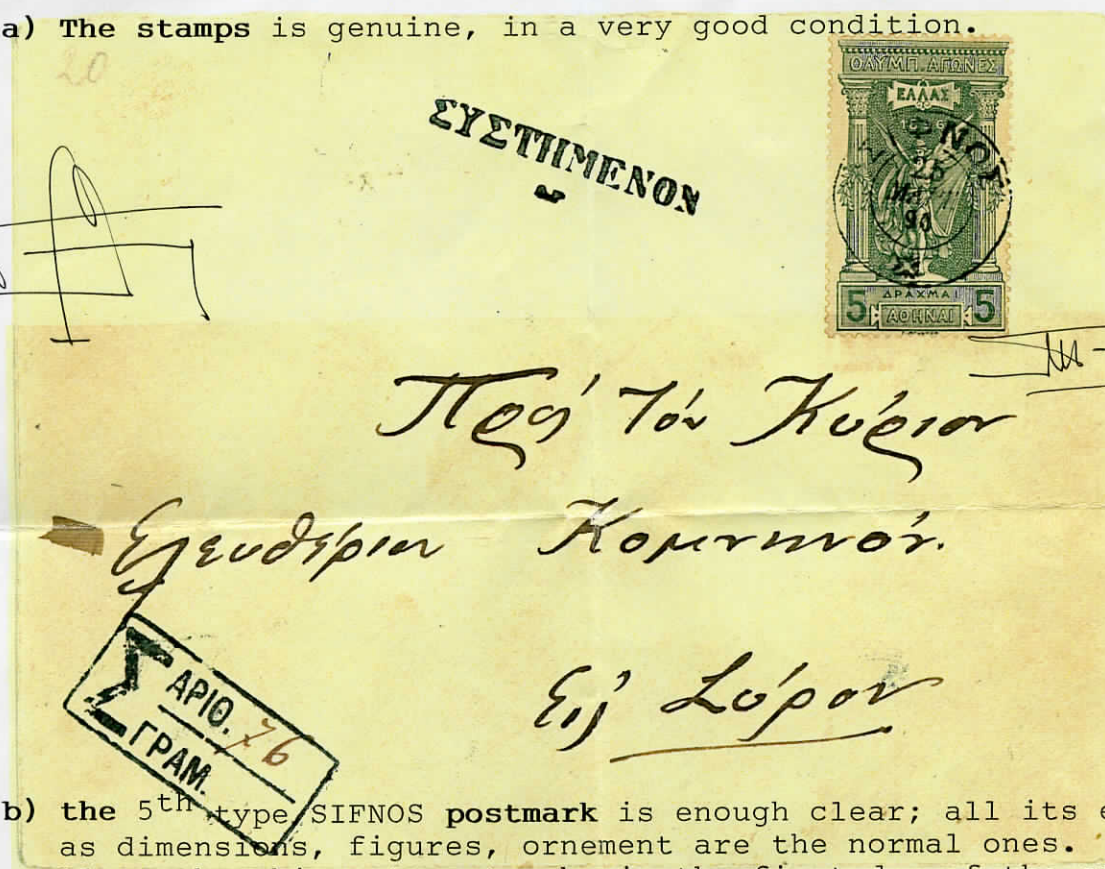 a) The stamps is genuine, in a very good condition.
20
ΣΥΣΤΗΜΕΝΟΝ
ΟΛΥΜΠ. ΑΓΩΝΕΣ
ΕΛΛΑΣ
ΦΝΟΣ
25
90
ΔΡΑΧΜΑΙ
5 ΑΘΗΝΑΙ 5
Πρὸς Τόν Κύριον
Ελευθέριον Κομνηνόν.
Εἰς Σύρον
Σ ΑΡΙΘ. 76
ΓΡΑΜ.
b) the 5th type SIFNOS postmark is enough clear; all its e
as dimensions, figures, ornement are the normal ones.